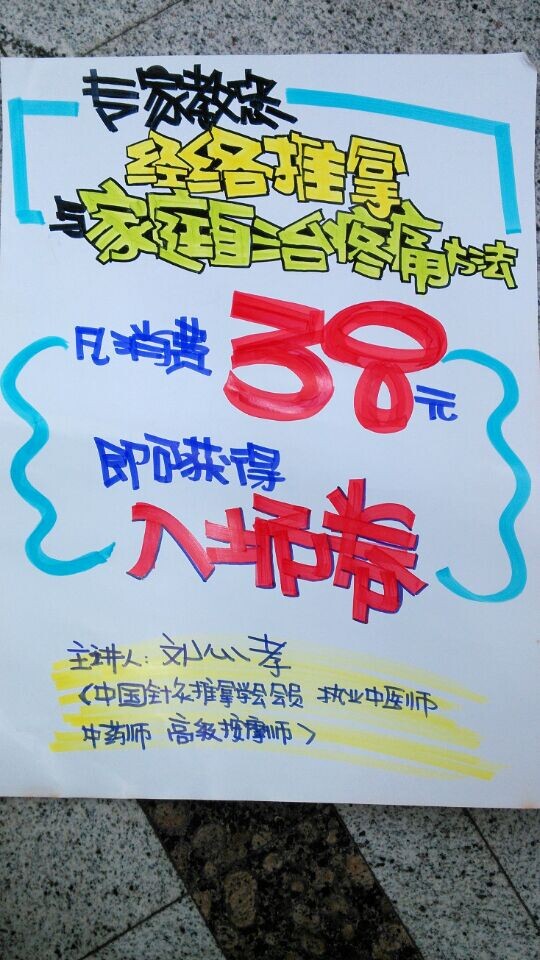 专家教您
经络推拿
与家庭自治疼痛方法
凡消费38元
即可获得
入场券
主讲人:刘心孝
(中国针灸推拿学会会员 执业中医师
中药师 高级按摩师)